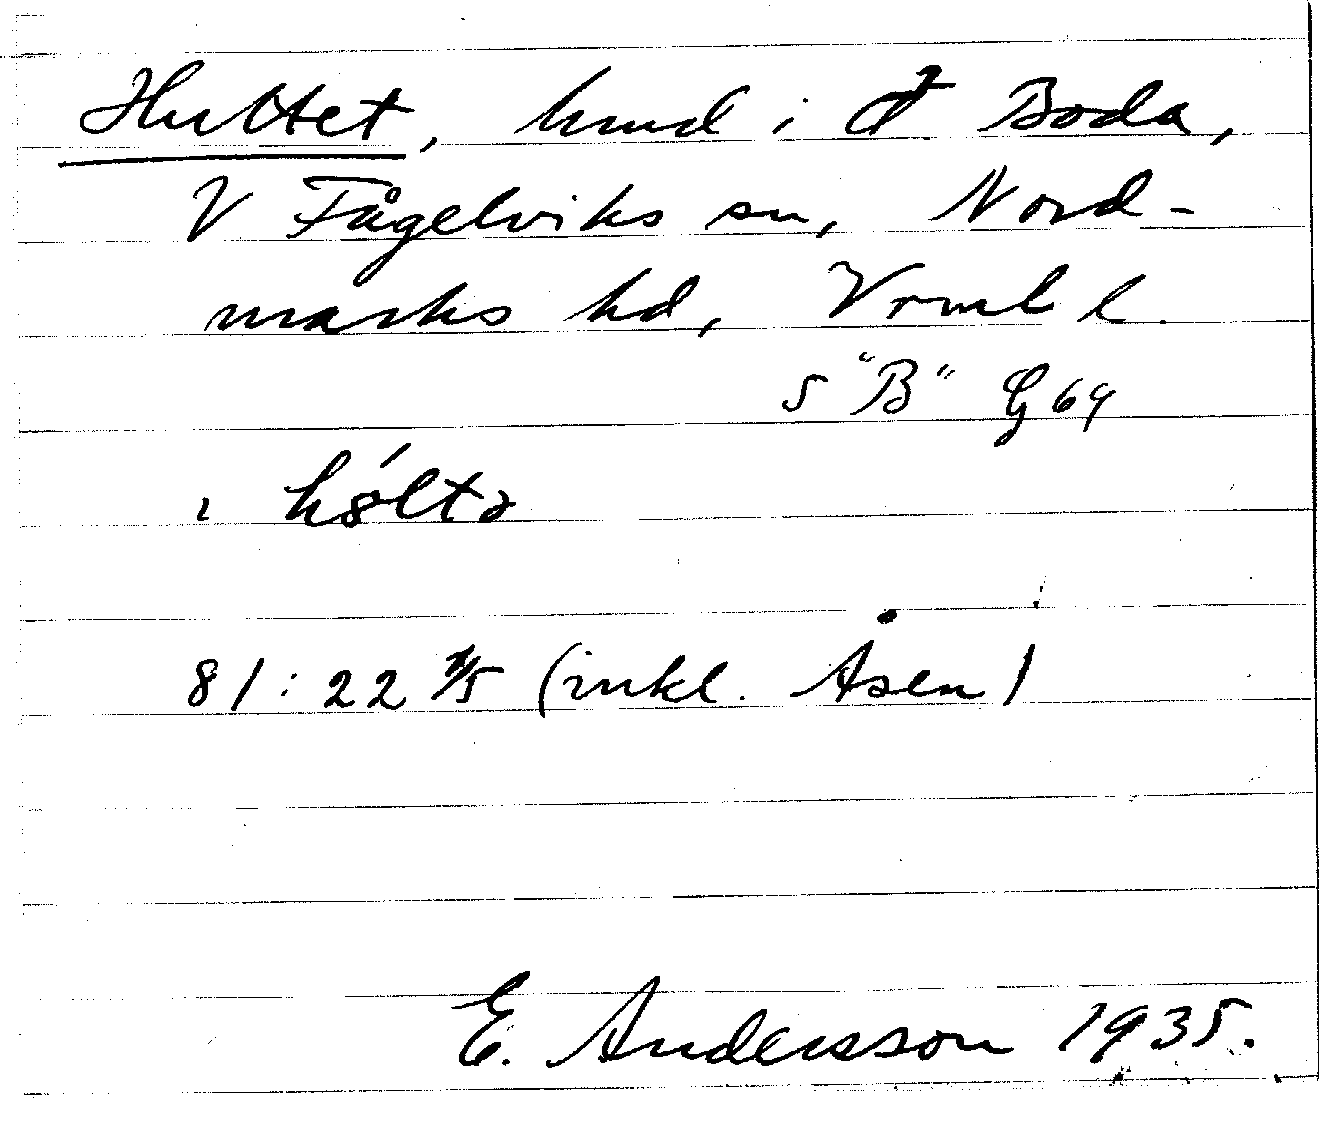 Hultet, hmd i Boda,
V Fågelviks sn, Nord-
marks hd, Vrml l.
5 "B" G 69
hǿltə
81:22 (inkl. Åsen)
E. Andersson 1935.